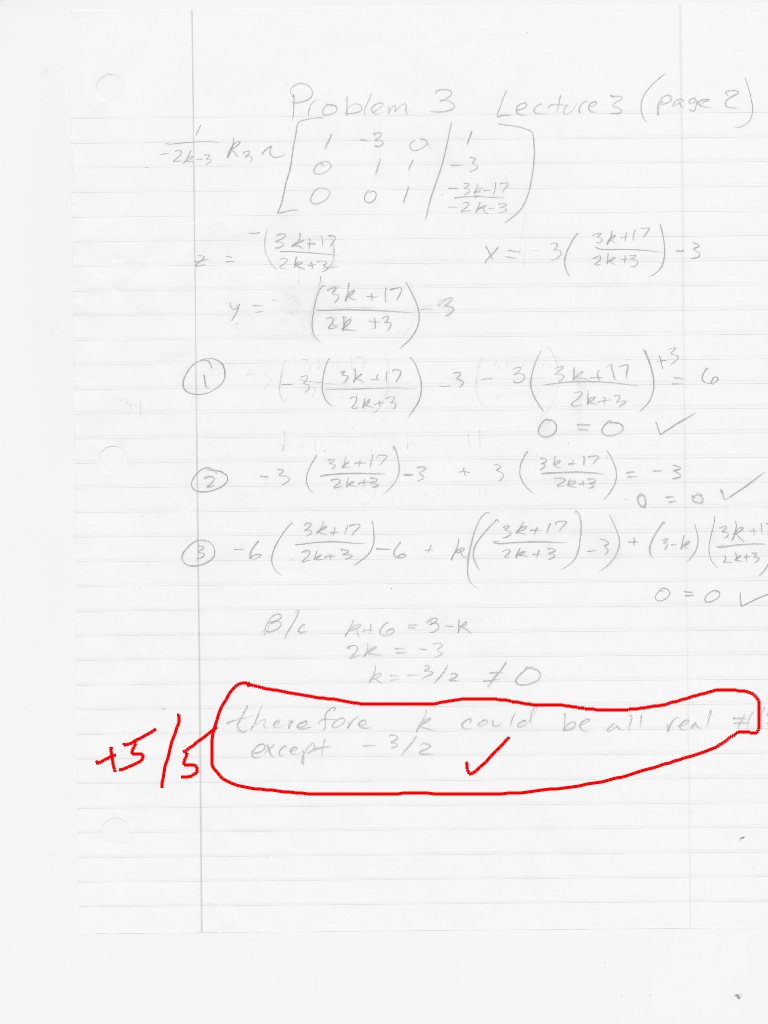 Problem 3 Lecture 3 (page 2)
1/(-2k-3) R3 ~ [ 1 -3 0 | 1
0 1 1 | -3
0 0 1 | (-3k-17)/(-2k-3) ]
z = -(3k+17)/(2k+3) x = -3((3k+17)/(2k+3)) -3
y = ((3k+17)/(2k+3)) -3
① -3((3k+17)/(2k+3)) -3 - 3((3k+17)/(2k+3)) +3 = 6
0 = 0 ✓
② -3((3k+17)/(2k+3)) -3 + 3((3k+17)/(2k+3)) = -3
0 = 0 ✓
③ -6((3k+17)/(2k+3)) -6 + k(((3k+17)/(2k+3)) -3) + (3-k)((3k+17)/(2k+3)
0 = 0 ✓
B/c k+6 = 3-k
2k = -3
k = -3/2 ≠ 0
therefore k could be all real #'s
except -3/2 ✓
+5/5